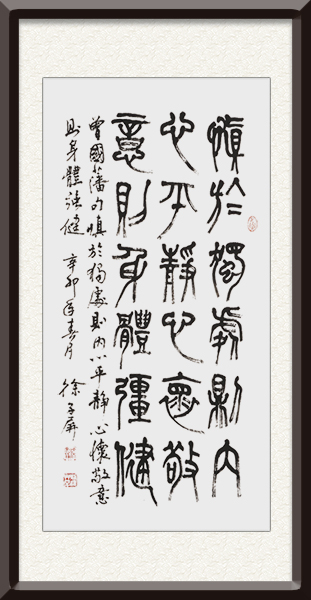 慎於獨處則内
心平靜心懷敬
意則身體彊健
曾國藩句慎於獨處則内心平靜心懷敬意
則身體强健 辛卯年春月 徐子屏